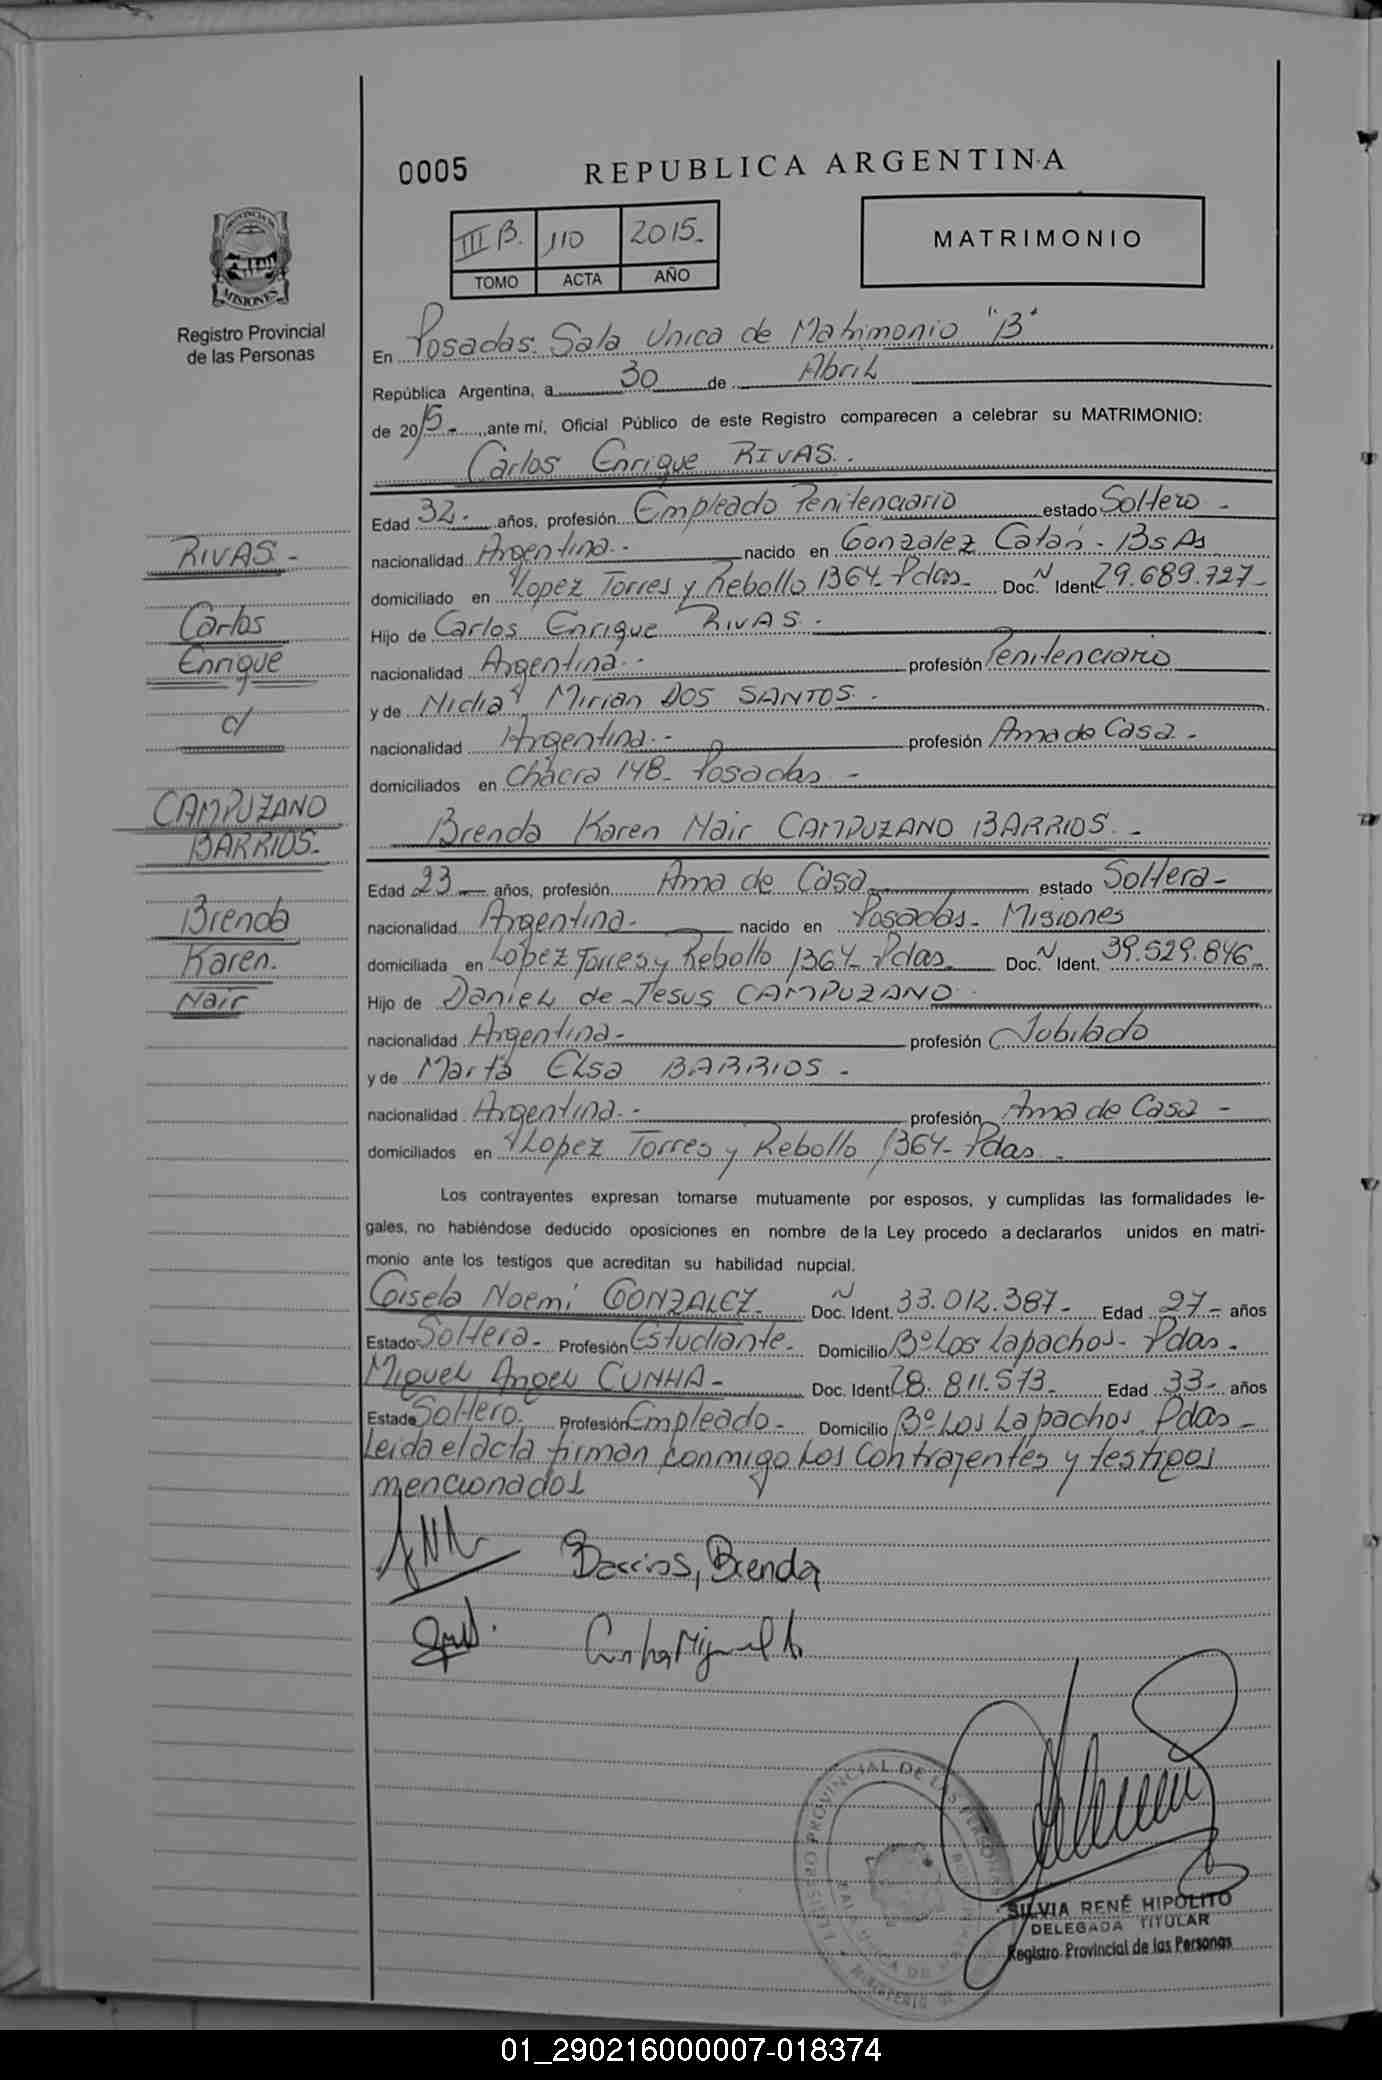 0005 REPUBLICA ARGENTINA
III B. 110 2015.-
TOMO ACTA AÑO
MATRIMONIO
PROVINCIA DE
MISIONES
Registro Provincial
de las Personas
En Posadas. Sala Unica de Matrimonio "B"
República Argentina, a 30 de Abril
de 2015.- ante mí, Oficial Público de este Registro comparecen a celebrar su MATRIMONIO:
Carlos Enrique RIVAS.-
Edad 32.- años, profesión Empleado Penitenciario estado Soltero-
nacionalidad Argentina.- nacido en Gonzalez Catán - Bs As
domiciliado en Lopez Torres y Rebollo 1364- Pdas- Doc. N Ident. 29.689.727-
Hijo de Carlos Enrique RIVAS.-
nacionalidad Argentina.- profesión Penitenciario
y de Nidia Mirian DOS SANTOS.-
nacionalidad Argentina.- profesión Ama de Casa.-
domiciliados en Chacra 148- Posadas.-
Brenda Karen Nair CAMPUZANO BARRIOS.-
Edad 23- años, profesión Ama de Casa estado Soltera-
nacionalidad Argentina- nacido en Posadas- Misiones
domiciliada en Lopez Torres y Rebollo 1364- Pdas- Doc. N Ident. 39.529.846-
Hijo de Daniel de Jesus CAMPUZANO
nacionalidad Argentina- profesión Jubilado
y de Marta Elsa BARRIOS-
nacionalidad Argentina.- profesión Ama de Casa-
domiciliados en Lopez Torres y Rebollo 1364- Pdas.-
Los contrayentes expresan tomarse mutuamente por esposos, y cumplidas las formalidades le-
gales, no habiéndose deducido oposiciones en nombre de la Ley procedo a declararlos unidos en matri-
monio ante los testigos que acreditan su habilidad nupcial.
Gisela Noemi GONZALEZ- Doc. N Ident. 33.012.387- Edad 27- años
Estado Soltera- Profesión Estudiante- Domicilio Bº Los Lapachos- Pdas-
Miguel Angel CUNHA- Doc. Ident. 28.811.573- Edad 33- años
Estado Soltero. Profesión Empleado- Domicilio Bº Los Lapachos Pdas-
Leida el acta firman conmigo los contrayentes y testigos
mencionados
Barrios, Brenda
Cunha Miguel A
RIVAS-
Carlos
Enrique
c/
CAMPUZANO
BARRIOS-
Brenda
Karen.
Nair
REGISTRO PROVINCIAL DE LAS PERSONAS
SALA UNICA DE
SILVIA RENÉ HIPOLITO
DELEGADA TITULAR
Registro Provincial de las Personas
01_290216000007-018374